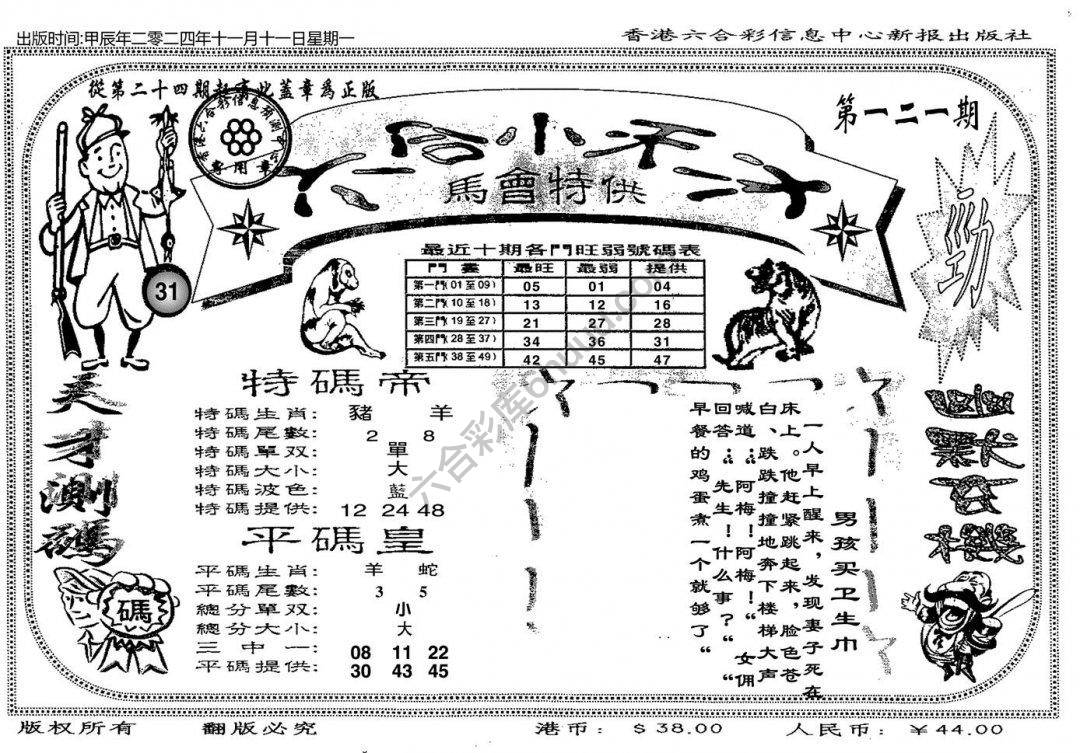 出版时间:甲辰年二零二四年十一月十一日星期一
香港六合彩信息中心新报出版社
從第二十四期起蓋章為正版
第一二一期
專用章
馬會特供
勁
31
最近十期各門旺弱號碼表
門畫 最旺 最弱 提供
第一門(01至09) 05 01 04
第二門(10至18) 13 12 16
第三門(19至27) 21 27 28
第四門(28至37) 34 36 31
第五門(38至49) 42 45 47
天才測碼
碼
特碼帝
特碼生肖: 豬 羊
特碼尾數: 2 8
特碼單双: 單
特碼大小: 大
特碼波色: 藍
特碼提供: 12 24 48
平碼皇
平碼生肖: 羊 蛇
平碼尾數: 3 5
總分單双: 小
總分大小: 大
三中一: 08 11 22
平碼提供: 30 43 45
男孩买卫生巾
一人早上醒来，发现妻子死在
床上。他赶紧跳起来，脸色苍
白、跌跌撞撞地奔下楼梯大声
喊道：“阿梅！阿梅！”女佣
回答：“先生！什么事？”“
早餐的鸡蛋煮一个就够了“
幽默玄機
六合彩库
版权所有 翻版必究 港币: $ 38.00 人民币: ¥ 44.00